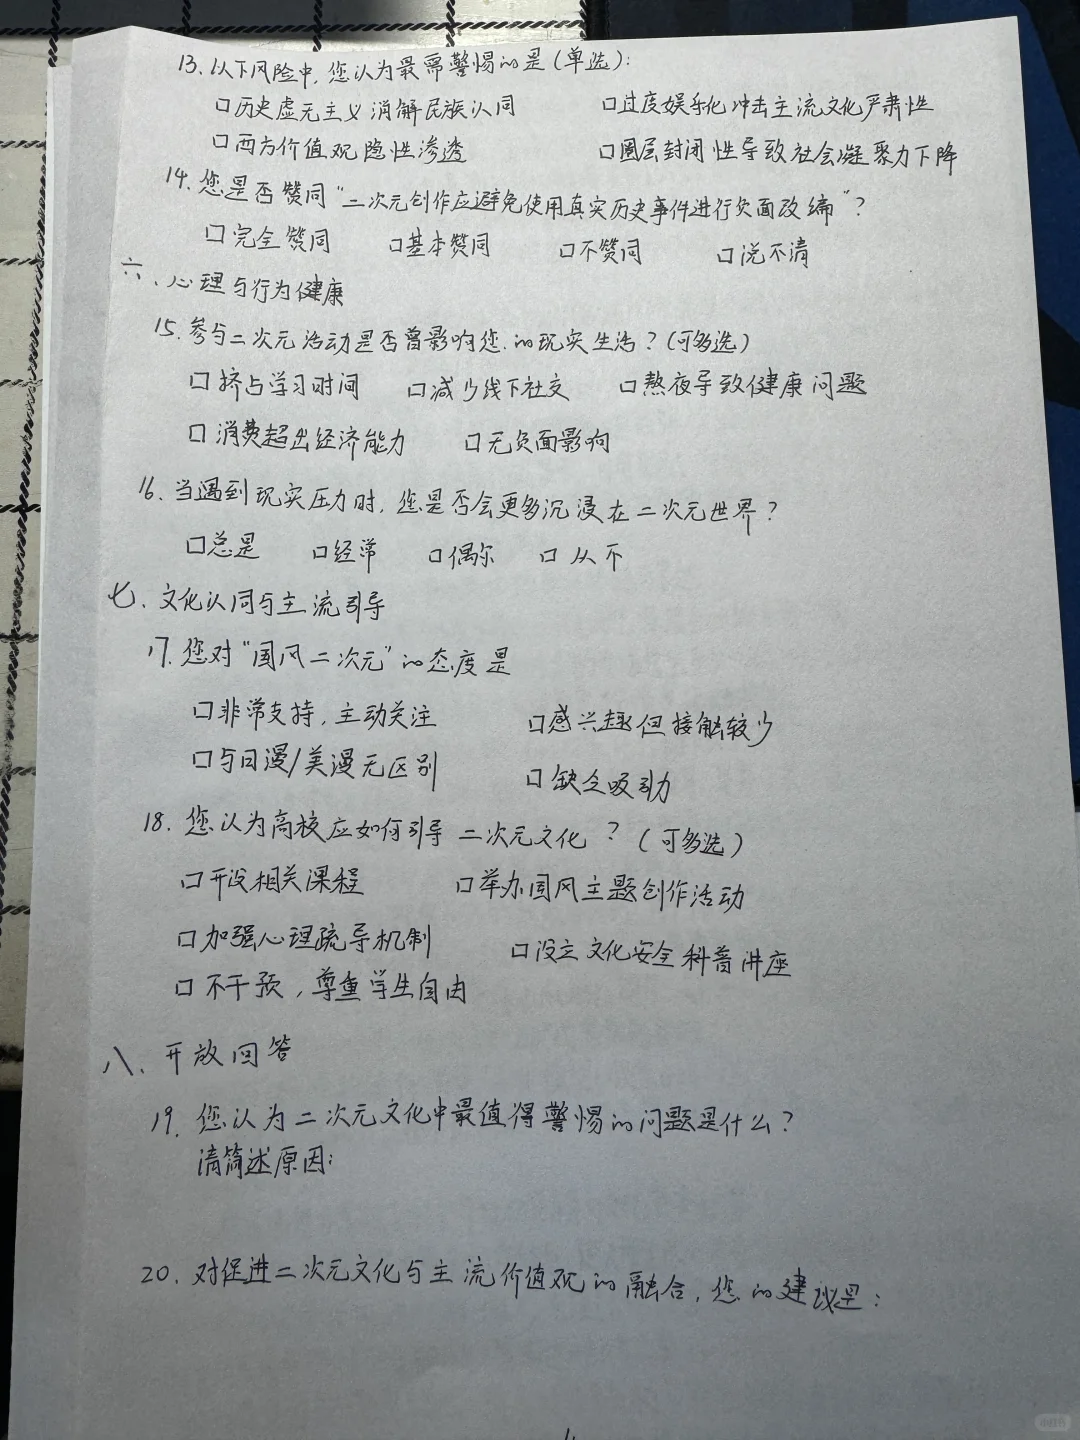 13. 以下风险中，您认为最需警惕的是（单选）：
□历史虚无主义消解民族认同 □过度娱乐化冲击主流文化严肃性
□西方价值观隐性渗透 □圈层封闭性导致社会凝聚力下降
14. 您是否赞同“二次元创作应避免使用真实历史事件进行负面改编”？
□完全赞同 □基本赞同 □不赞同 □说不清
六、心理与行为健康
15. 参与二次元活动是否曾影响您的现实生活？（可多选）
□挤占学习时间 □减少线下社交 □熬夜导致健康问题
□消费超出经济能力 □无负面影响
16. 当遇到现实压力时，您是否会更多沉浸在二次元世界？
□总是 □经常 □偶尔 □从不
七、文化认同与主流引导
17. 您对“国风二次元”的态度是
□非常支持，主动关注 □感兴趣但接触较少
□与日漫/美漫无区别 □缺乏吸引力
18. 您认为高校应如何引导二次元文化？（可多选）
□开设相关课程 □举办国风主题创作活动
□加强心理疏导机制 □设立文化安全科普讲座
□不干预，尊重学生自由
八、开放回答
19. 您认为二次元文化中最值得警惕的问题是什么？
请简述原因：
20. 对促进二次元文化与主流价值观的融合，您的建议是：
小红书